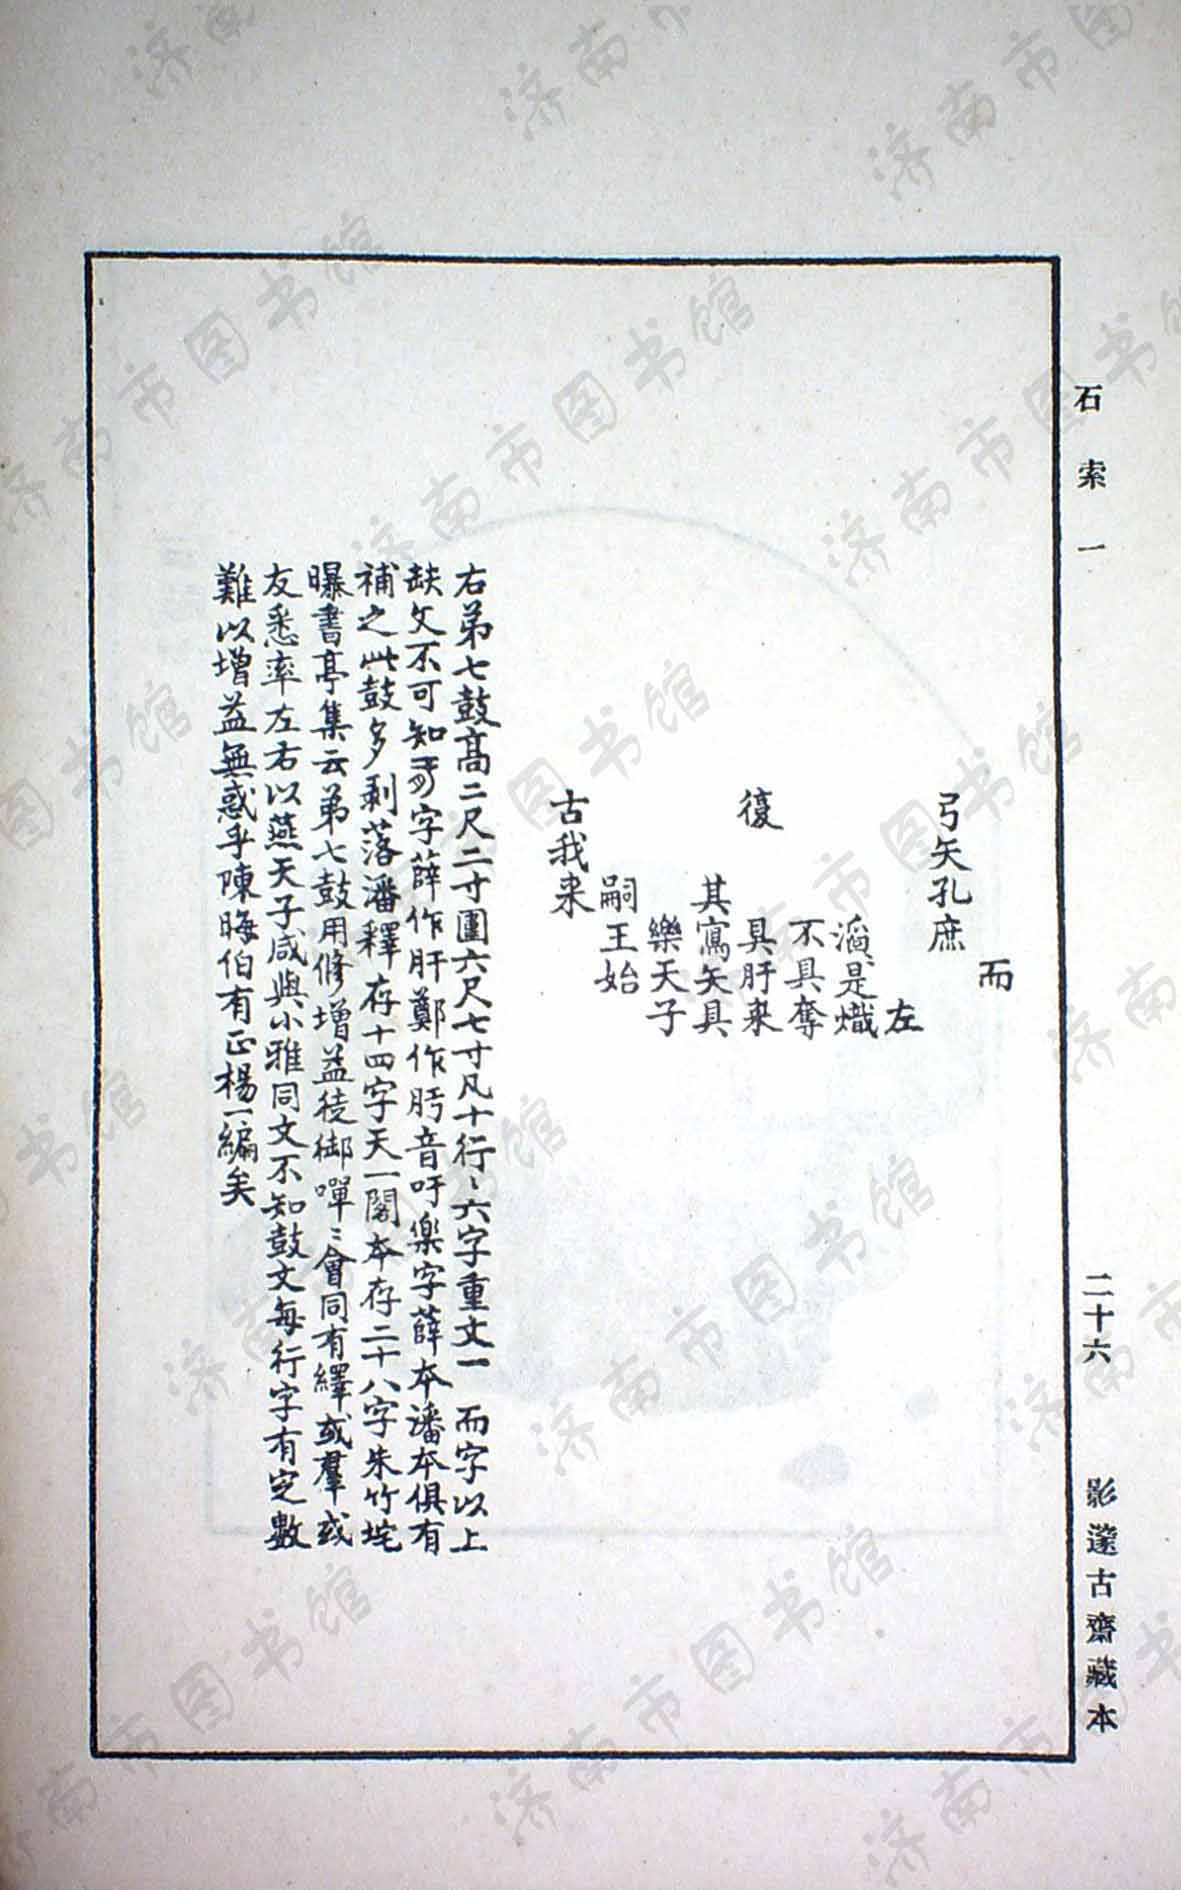 石索一
二十六
影邃古齋藏本
而
弓矢孔庶
左
滔是熾
不具奪
復
具肝来
其寫矢具
樂天子
嗣王始
古我来
右弟七鼓高二尺二寸圍六尺七寸凡十行〻六字重文一 而字以上
缺文不可知 字薛作肝鄭作肟音吁樂字薛本潘本俱有
補之此鼓多剥落潘釋存十四字天一閣本存二十八字朱竹垞
曝書亭集云弟七鼓用修增益徒御嘽〻會同有繹或羣或
友悉率左右以燕天子咸與小雅同文不知鼓文每行字有定數
難以增益無惑乎陳晦伯有正楊一編矣
济南市图书馆